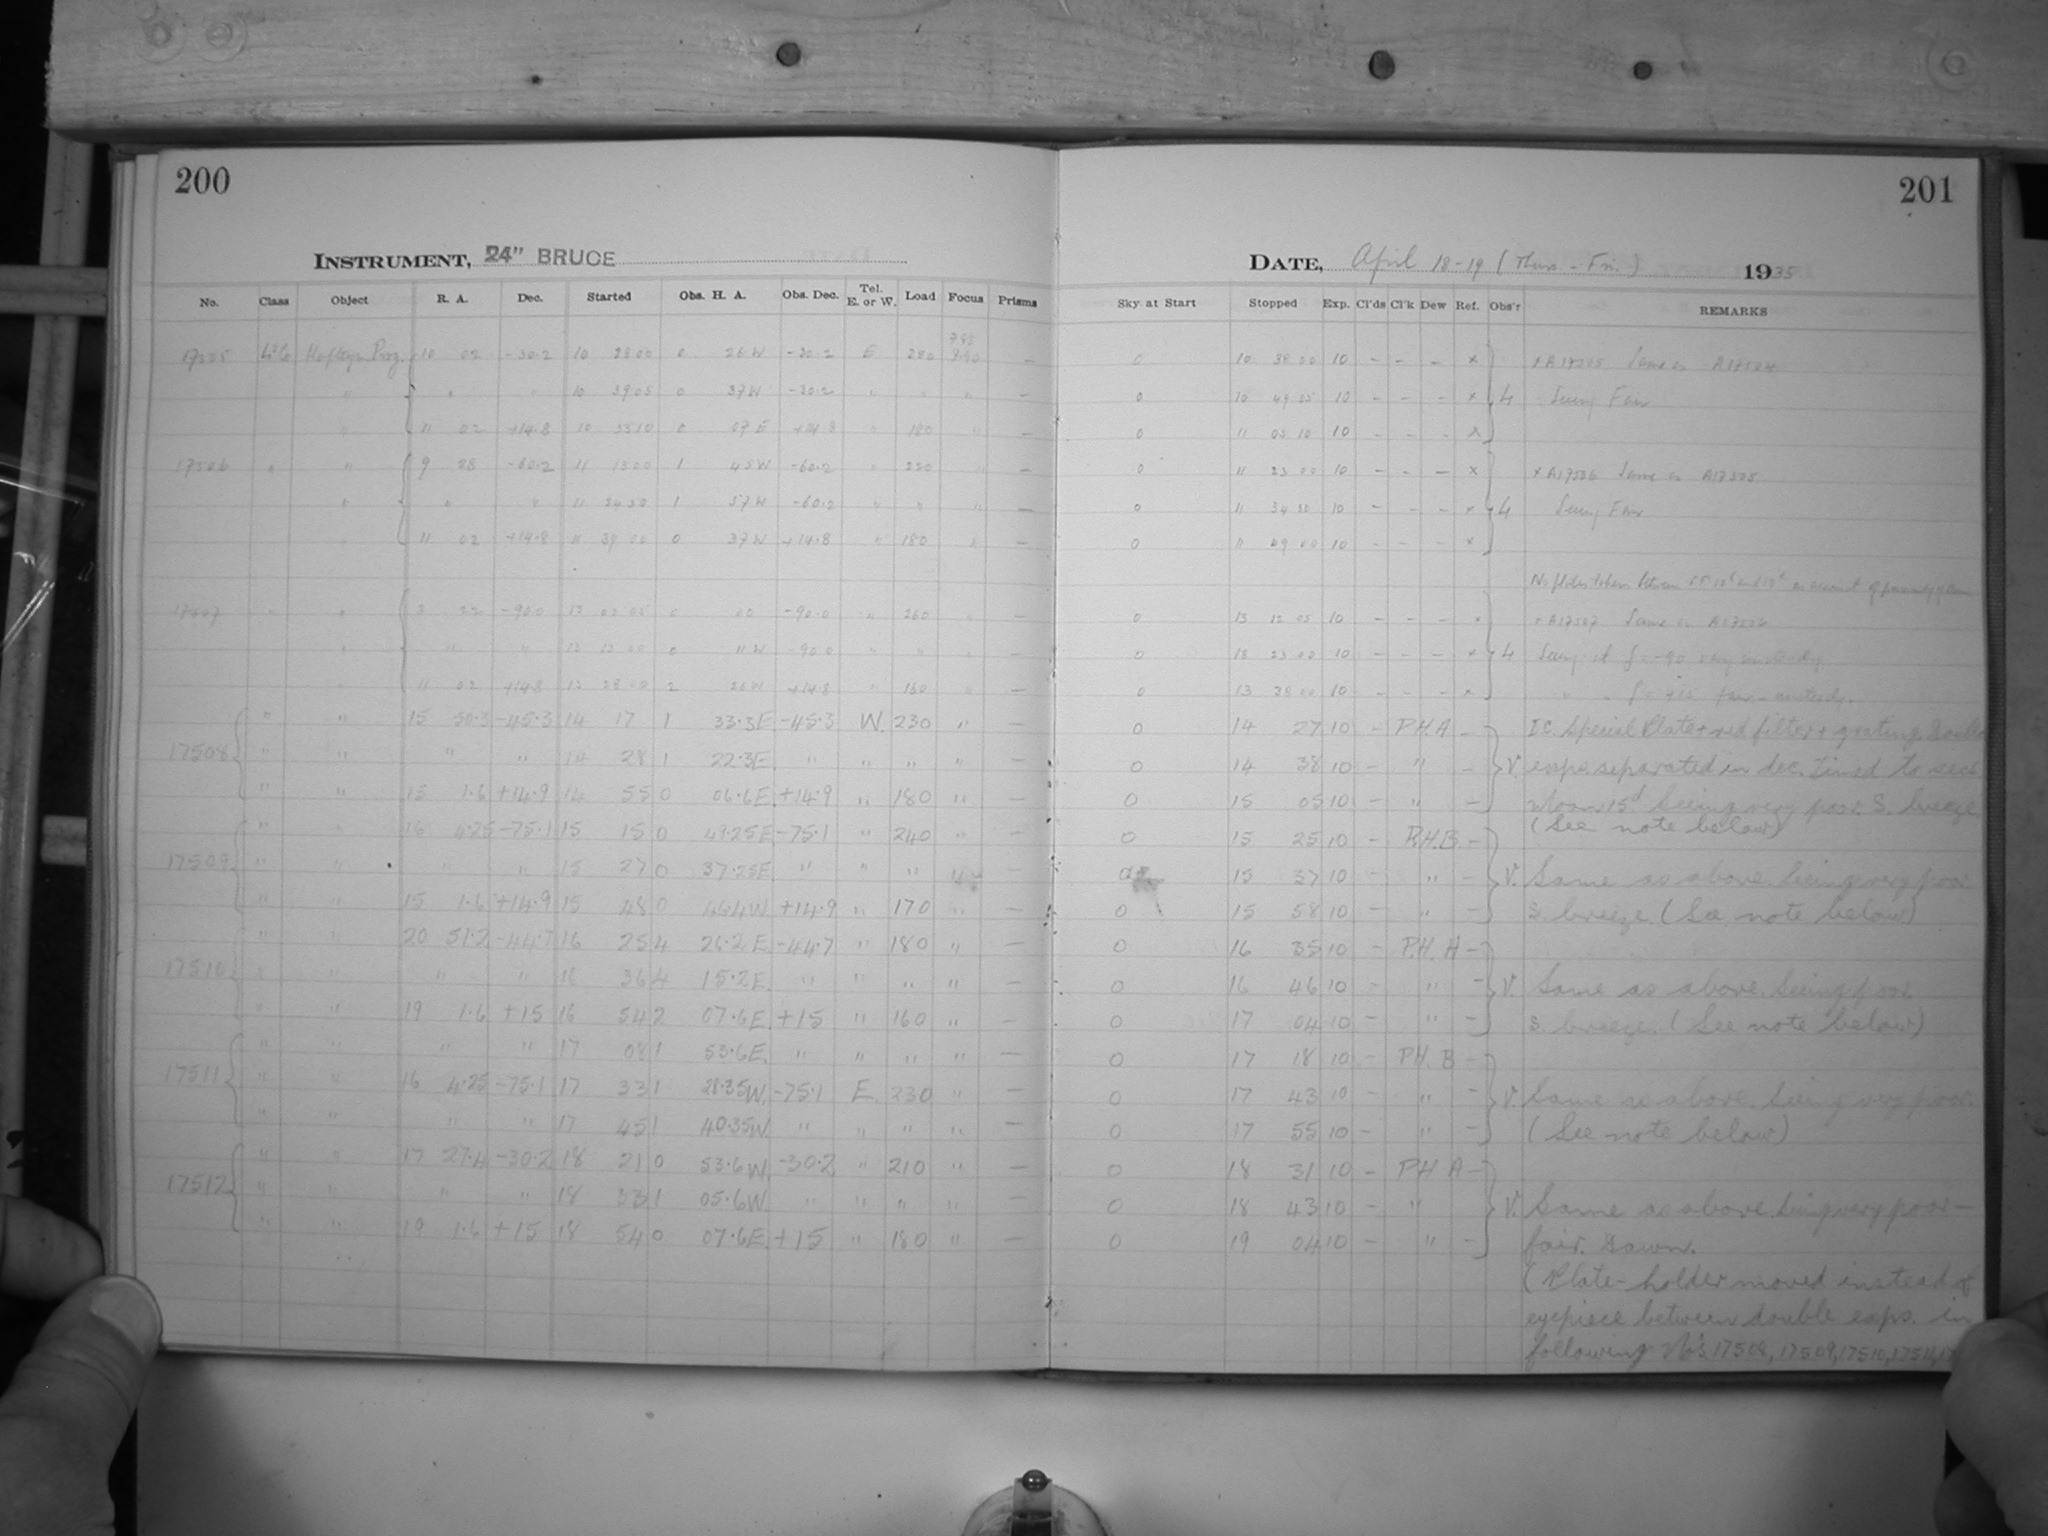 200
201
INSTRUMENT, 24" BRUCE
DATE, April 18-19 (Thurs. - Fri.) 1935
No. Class Object R. A. Dec. Started Obs. H. A. Obs. Dec. Tel. E. or W. Load Focus Prisms Sky at Start Stopped Exp. Cl'ds Cl'k Dew Ref. Obs'r REMARKS
10 02 -30.2 10 28 00 0 26W -30.2 E 7.90 — 0 10 38 00 10 - - - x x A17505 Same as A17504
" " " 10 39 05 0 37W -30.2 " " " — 0 10 49 05 10 - - - x 4 Seeing Fair
" 11 02 +14.8 10 53 10 0 07E +14.8 " 180 " — 0 11 03 10 10 - - - x
17506 " " 9 28 -60.2 11 13 00 1 45W -60.2 " 220 " — 0 11 23 00 10 - - - x x A17506 Same as A17505
" " " 11 24 30 1 57W -60.2 " " " — 0 11 34 30 10 - - - x 4 Seeing Fair
11 02 +14.8 11 39 00 0 37W +14.8 " 180 " — 0 11 49 00 10 - - - x
17507 " " -90.0 13 02 05 0 00 -90.0 " 260 " — 0 13 12 05 10 - - - x x A17507 Same as A17506
" " " 13 13 00 0 11W -90.0 " " " — 0 13 23 00 10 - - - x 4 Seeing at δ = -90 very unsteady.
" 11 02 +14.8 13 28 00 2 26W +14.8 " 180 " — 0 13 38 00 10 - - - x " " δ = +15 fair - unsteady.
" " 15 50.3 -45.3 14 17 1 33.3E -45.3 W. 230 " 0 14 27 10 - P.H.A - I.C. Special Plate + red filter + grating. Double
17508 " " " " 14 28 1 22.3E " " " " — 0 14 38 10 - " - V. exps. separated in dec. timed to secs.
" " 15 1.6 +14.9 14 55 0 06.6E +14.9 " 180 " — 0 15 05 10 - " - Moon 15d Seeing very poor. S. breeze
" " 16 4.25 -75.1 15 15 0 49.25E -75.1 " 240 " — 0 15 25 10 - P.H.B. - (See note below)
17509 " " " " 15 27 0 37.25E " " " — 15 37 10 - " - V. Same as above. Seeing very poor
" " 15 1.6 +14.9 15 48 0 +14.9 " 170 " — 0 15 58 10 - " - S. breeze. (See note below)
" " 20 51.2 -44.7 16 25 4 26.2E -44.7 " 180 " — 0 16 35 10 - P.H. A -
17510 " " " " 16 36 4 15.2E " " " " — 0 16 46 10 - " - V. Same as above. Seeing poor.
" " 19 1.6 +15 16 54 2 07.6E +15 " 160 " — 0 17 04 10 - " - S. breeze. (See note below)
" " " " 17 08 1 53.6E " " " " — 0 17 18 10 - P.H. B -
17511 " " 16 4.25 -75.1 17 33 1 28.35W. -75.1 E. 230 " — 0 17 43 10 - " - V. Same as above. Seeing very poor.
" " " " 17 45 1 40.35W. " " " " — 0 17 55 10 - " - (See note below)
" " 17 27.4 -30.2 18 21 0 53.6W. -30.2 " 210 " — 0 18 31 10 - P.H. A -
17512 " " " " 18 33 1 05.6W. " " " " — 0 18 43 10 - " V. Same as above. Seeing very poor -
" " 19 1.6 +15 18 54 0 07.6E +15 " 180 " — 0 19 04 10 - " - fair. Dawn.
(Plate-holder moved instead of
eyepiece between double exps. in
following No's. 17508, 17509, 17510, 17511,